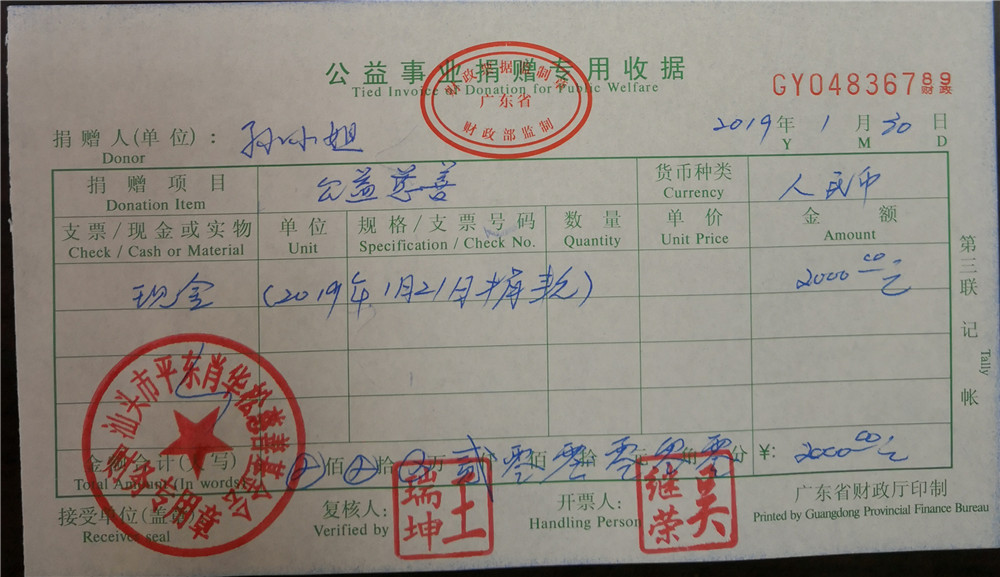 公益事业捐赠专用收据
Tied Invoice of Donation for Public Welfare
广东省
财政部监制
GY04836789
财政
捐赠人(单位): 孙小姐 2019年1月30日
Donor Y M D
捐赠项目 公益慈善 货币种类 人民币
Donation Item Currency
支票/现金或实物 单位 规格/支票号码 数量 单价 金额
Check / Cash or Material Unit Specification / Check No. Quantity Unit Price Amount
现金 (2019年1月21日捐款) 2000.00元
第三联 记帐
Tally
汕头市平东肖华松慈善基金会
财务专用章
金额合计(大写) 佰 拾 万 贰仟 零佰 零拾 零元 零角 零分 ¥: 2000.00元
Total Amount (In words)
接受单位(盖章) 复核人: 王瑞坤 开票人: 吴继荣 广东省财政厅印制
Receiver seal Verified by Handling Person Printed by Guangdong Provincial Finance Bureau